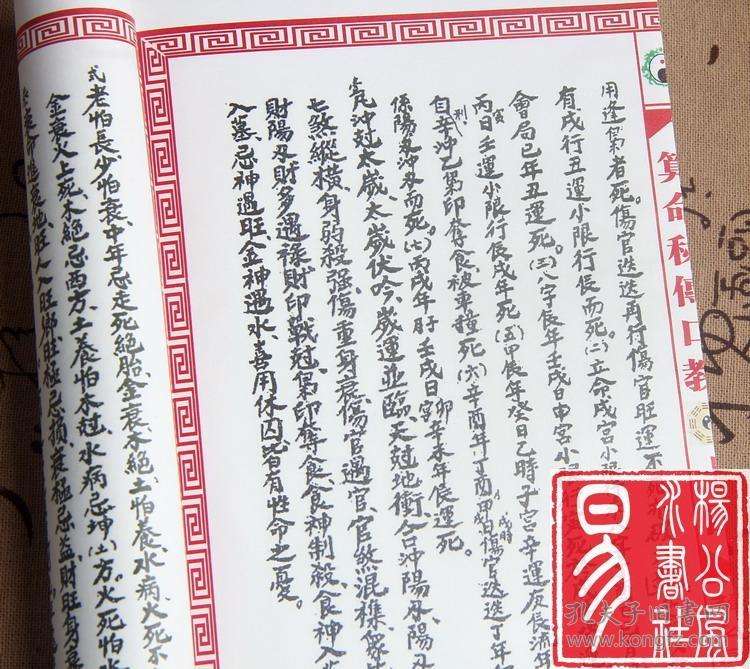 算命秘傳口教
用逢梟者死。傷官迭迭再行傷官旺運不
有戌行丑運小限行辰而死。(二)立命戌宮小
會局巳年丑運死。(三)八字辰年壬戌日申宮小
丙寅日壬運小限行辰戌年死(五)甲辰年癸日乙時子宮辛運
自刑辛沖乙累印奪食被車撞死(六)辛酉年丁酉甲戌日戌時傷官迭迭丁年
係陽刃沖刃而死。(七)丙戌年肖壬戌日字卯辛未年辰運死。
沖尅太歲太歲伏吟歲運並臨天尅地衝合沖陽刃陽刃
七煞縱橫身弱殺强傷重身衰傷官遇官官煞混樸
財陽刃財多遇祿財印戰尅梟印奪食食神制殺食神入
入墓忌神遇旺金神遇水喜用休囚比皆有性命之憂。
式老怕長少怕衰中年忌走死絕胎金衰木絕土怕養水病火死不
金衰火上死木絕忌西方土養怕木尅水病忌坤(土)方。火死怕水
衰命怕衰地旺人入旺鄉旺極忌損衰極忌益財旺身衰
楊公風
水書社
易
孔夫子旧書网
www.kongfz.com